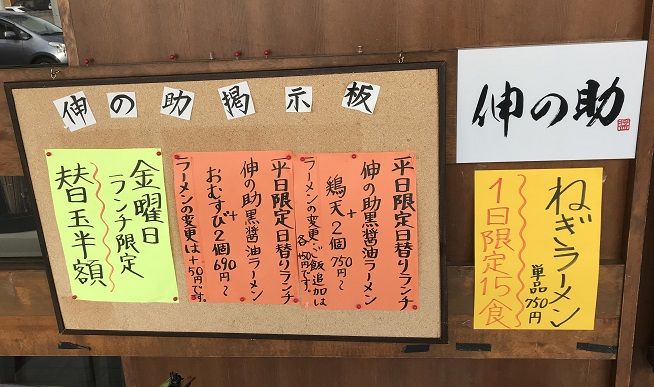 伸の助掲示板
伸の助
平日限定日替りランチ
伸の助黒醤油ラーメン
+
鶏天2個 750円〜
ラーメンの変更・ご飯追加は
各+50円です。
平日限定日替りランチ
伸の助黒醤油ラーメン
+
おむすび2個 690円〜
ラーメンの変更は+50円です。
金曜日
ランチ限定
替玉半額
ねぎラーメン
単品750円
1日限定15食